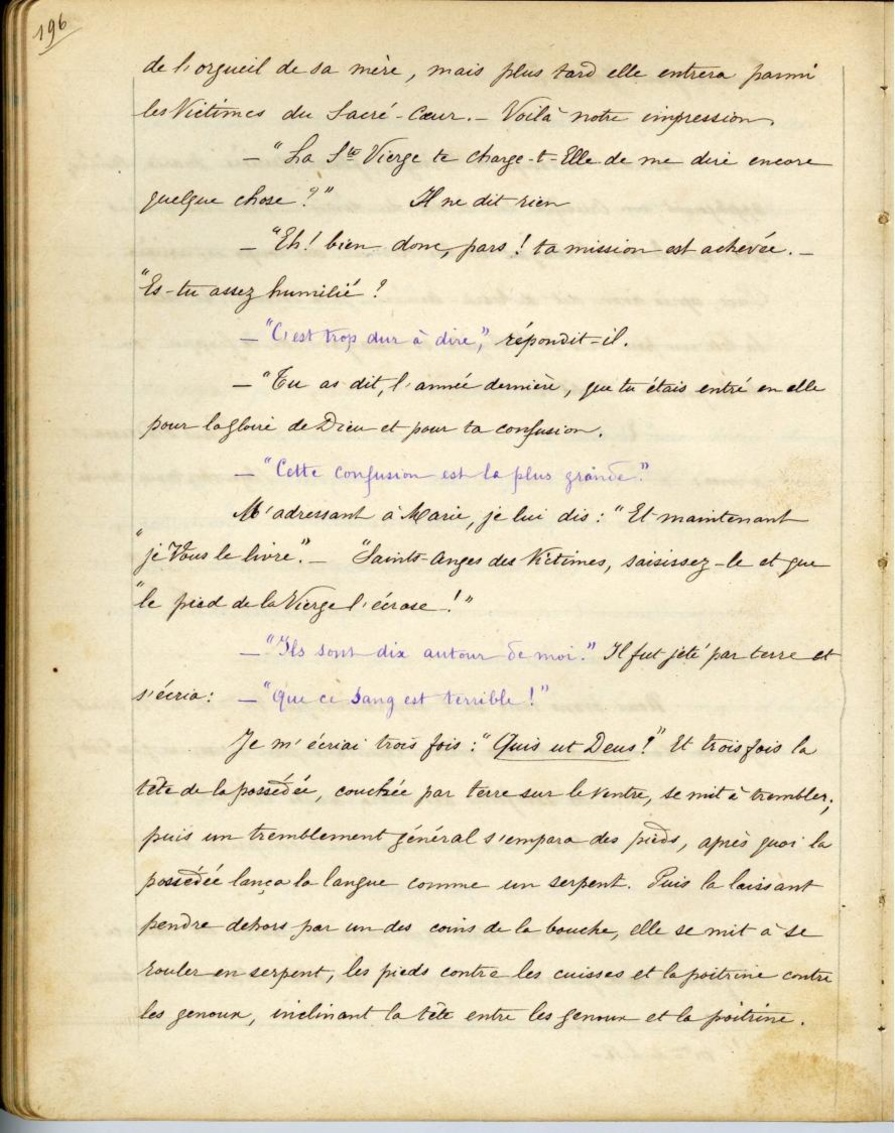 196
de l'orgueil de sa mère, mais plus tard elle entrera parmi
les Victimes du Sacré-Cœur. — Voilà notre impression.
— "La Ste Vierge te charge-t-Elle de me dire encore
quelque chose ?" Il ne dit rien
— "Eh ! bien donc, pars ! ta mission est achevée. —
"Es-tu assez humilié ?
— "C'est trop dur à dire," répondit-il.
— "Tu as dit, l'année dernière, que tu étais entré en elle
pour la gloire de Dieu et pour ta confusion.
— "Cette confusion est la plus grande."
M'adressant à Marie, je lui dis : "Et maintenant
"je Vous le livre". — "Saints-Anges des Victimes, saisissez-le et que
"le pied de la Vierge l'écrase !"
— "Ils sont dix autour de moi." Il fut jeté par terre et
s'écria : — "Que ce Sang est terrible !"
Je m'écriai trois fois : "Quis ut Deus !" Et trois fois la
tête de la possédée, couchée par terre sur le ventre, se mit à trembler ;
puis un tremblement général s'empara des pieds, après quoi la
possédée lança la langue comme un serpent. Puis la laissant
pendre dehors par un des coins de la bouche, elle se mit à se
rouler en serpent, les pieds contre les cuisses et la poitrine contre
les genoux, inclinant la tête entre les genoux et la poitrine.